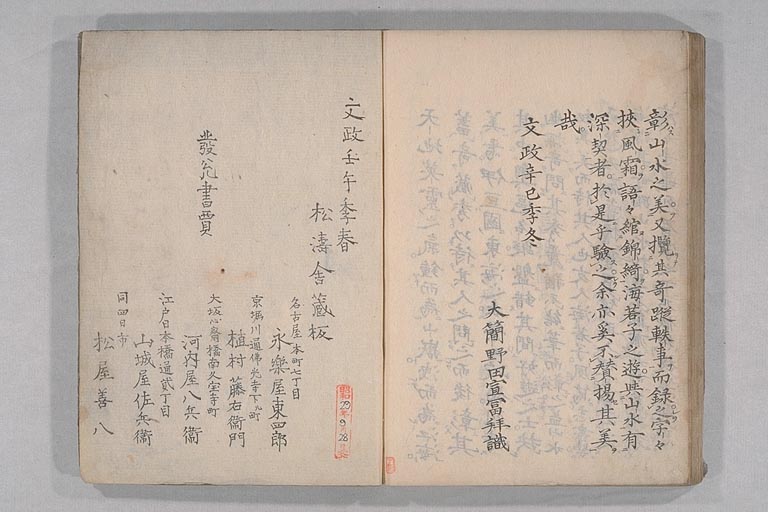 彰山水之美又攬其奇蹤軼事而録之字々
挾風霜語々綰錦綺海若子之遊與山水有
深契者於是乎驗之余亦奚不贊揚其美
哉
文政辛巳季冬
大簡野田宣富拜識
文政壬午季春
松濤舎藏板
發兌書賈
名古屋本町七丁目
永樂屋東四郎
京堀川通佛光寺下ル町
植村藤右衛門
大坂心斎橋南久宝寺町
河内屋八兵衞
江戸日本橋通貳丁目
山城屋佐兵衞
同四日市
松屋善八
昭和
29年
9
28